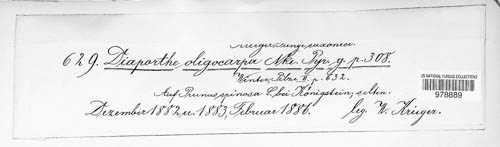 Krieger, Fungi saxonici
629. Diaporthe oligocarpa Nke. Pyr. g. p. 308.
Winter, Pilze II. p. 632.
Auf Prunus spinosa L. bei Königstein, selten.
Dezember 1882 u. 1883, Februar 1886. leg. W. Krieger.
US NATIONAL FUNGUS COLLECTIONS
978889